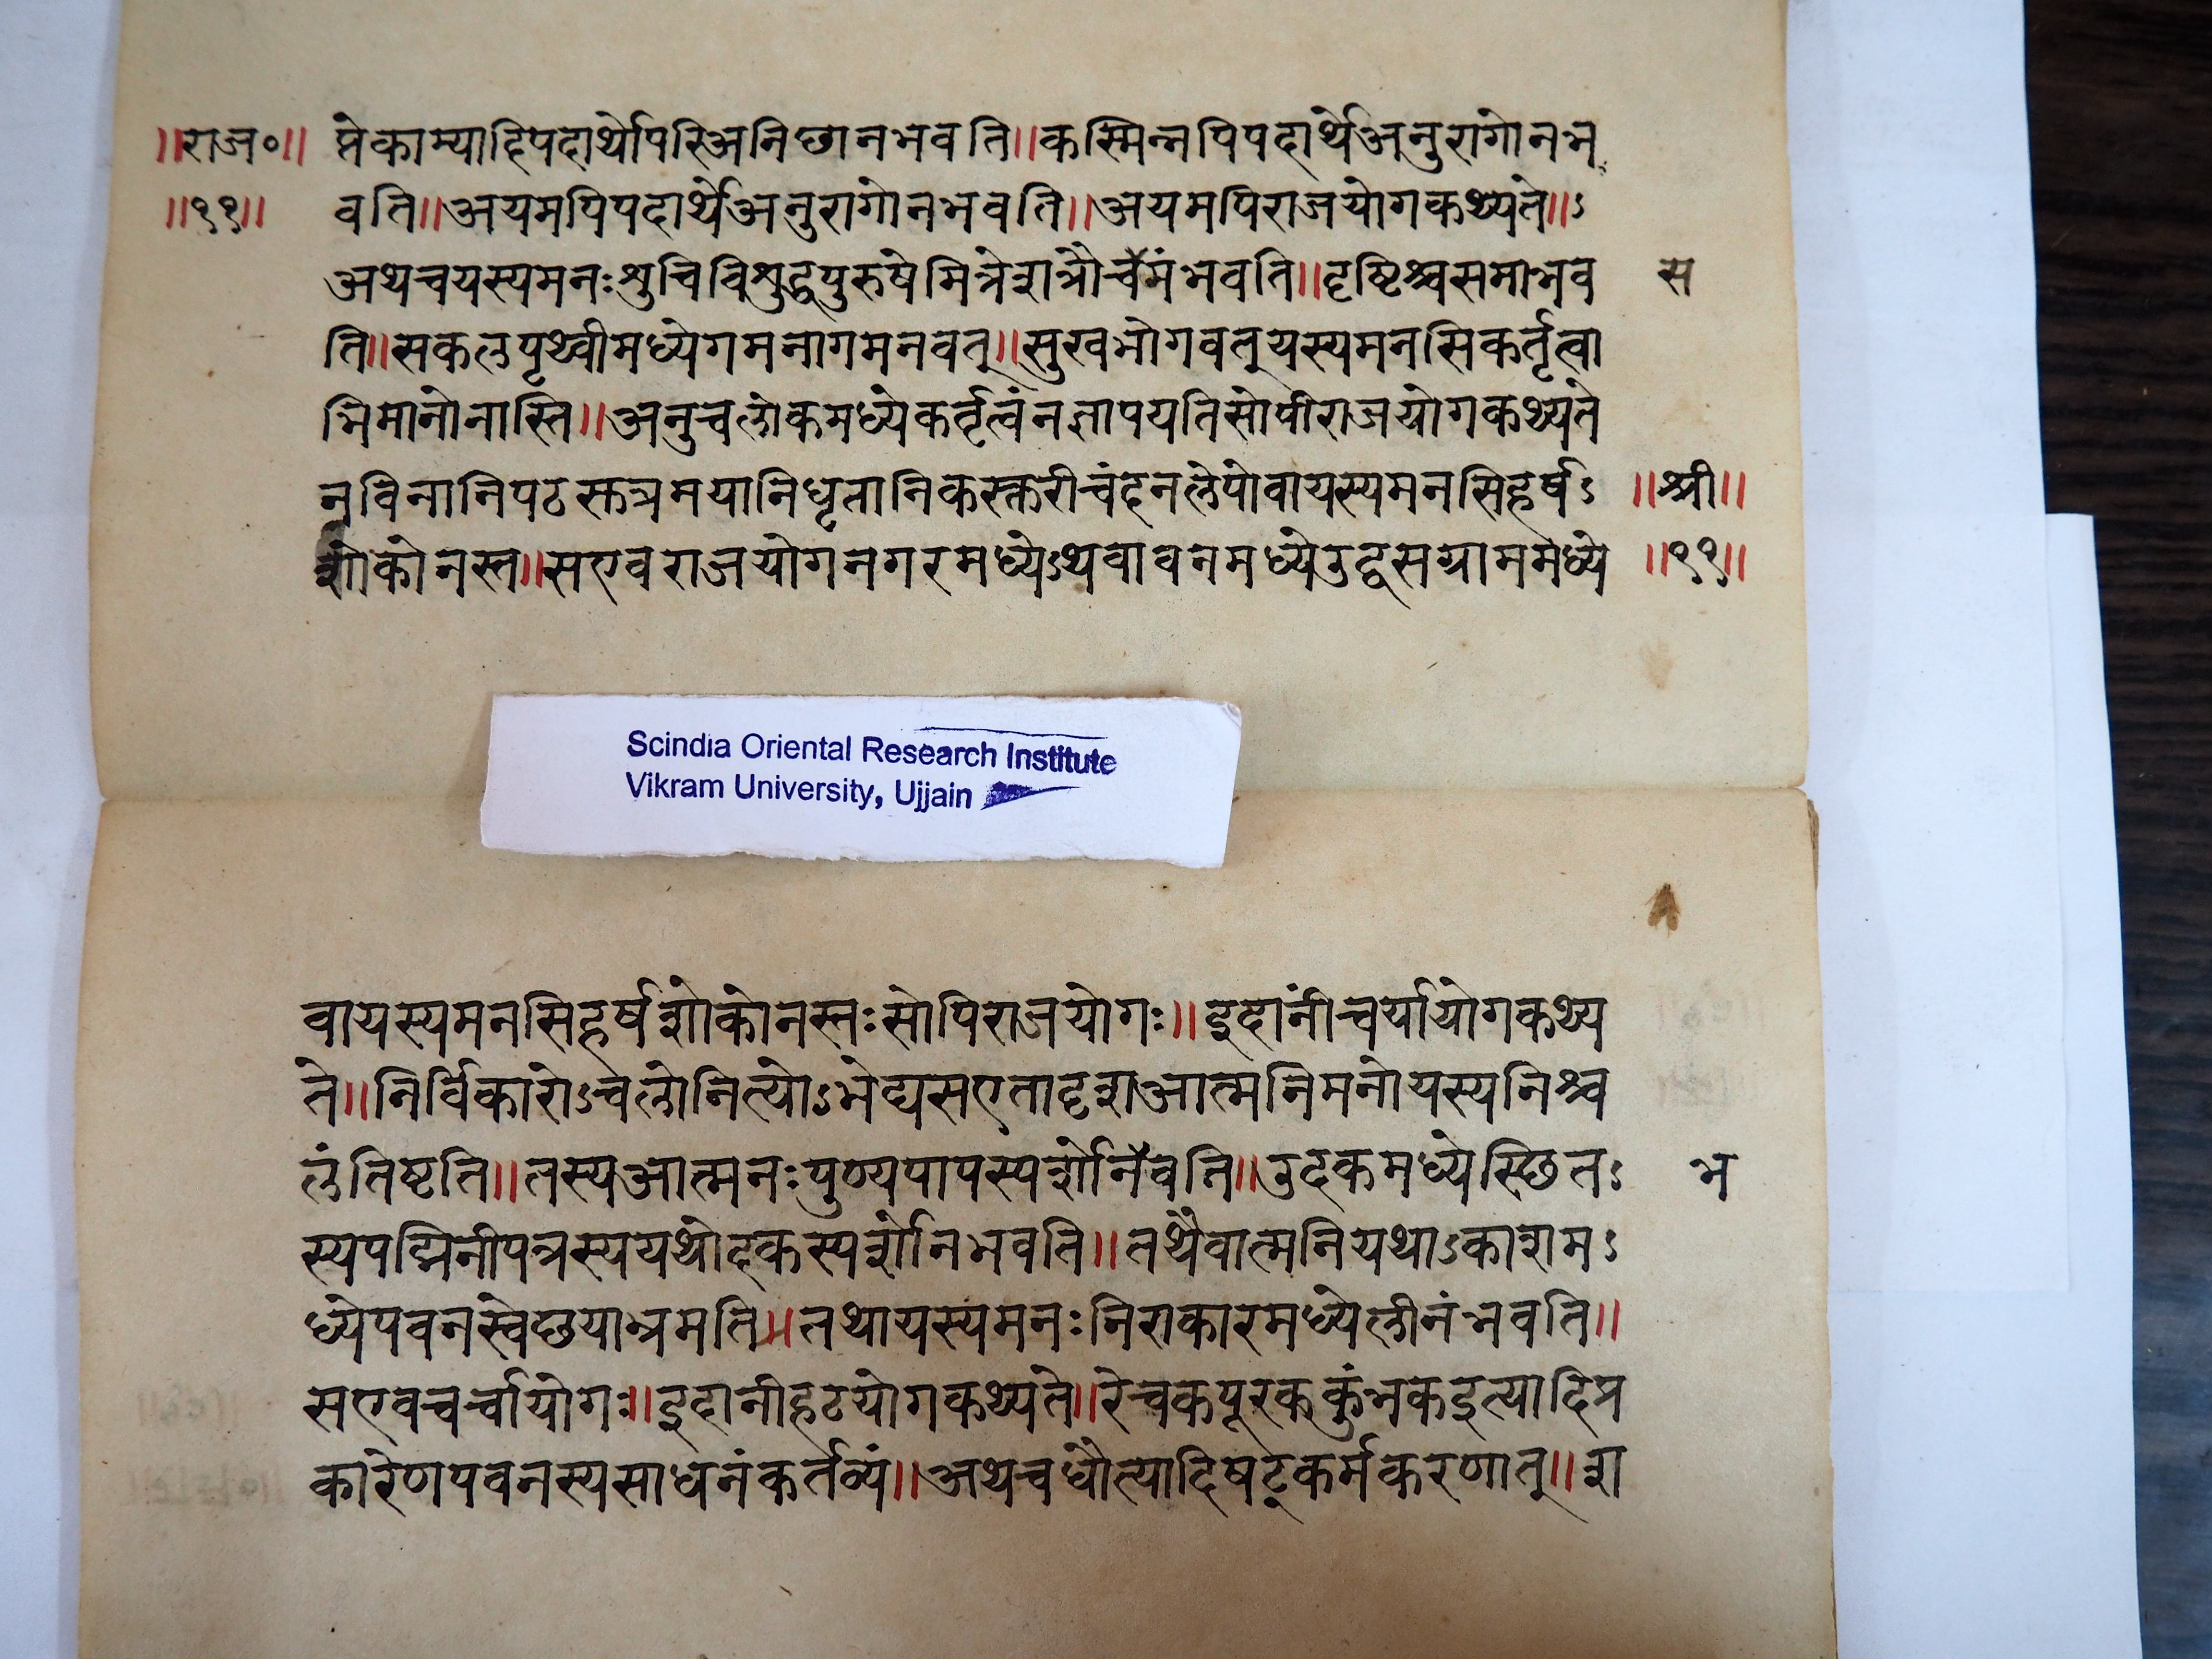 ॥राज०॥ प्तेकाम्यादिपदार्थोपरिअनिछानभवति॥कस्मिन्नपिपदार्थेअनुरागोनभ
॥११॥ वति॥अयमपिपदार्थेअनुरागोनभवति॥अयमपिराजयोगकथ्यते॥ऽ
अथचयस्यमनःशुचिविशुद्धपुरुषेमित्रेशत्रौचॅमंभवति॥दृष्टिश्चसमाभव स
ति॥सकलपृथ्वीमध्येगमनागमनवत्॥सुखभोगवत्यस्यमनसिकर्तृत्वा
भिमानोनास्ति॥अनुचलोकमध्येकर्तृत्वंनज्ञापयतिसोपीराजयोगकथ्यते
नविनानिपठस्कत्रमयानिधृतानिकस्तरीचंदनलेपोवायस्यमनसिहर्षऽ ॥श्री॥
शोकोनस्त॥सएवराजयोगनगरमध्येऽथवावनमध्येउद्वसग्राममध्ये ॥११॥
Scindia Oriental Research Institute
Vikram University, Ujjain
वायस्यमनसिहर्षशोकोनस्तःसोपिराजयोगः॥इदांनीचर्यायोगकथ्य
ते॥निर्विकारोऽचलोनित्योऽभेद्यसएतादृशआत्मनिमनोयस्यनिश्च
लंतिष्टति॥तस्यआत्मनःपुण्यपापस्पर्शोनॅवति॥उदकमध्येस्छितऽ भ
स्यपद्मिनीपत्रस्ययथोदकस्पर्शोनिभवति॥तथैवात्मनियथाऽकाशमऽ
ध्येपवनस्वेछयाभ्रमति॥तथायस्यमनःनिराकारमध्येलीनंभवति॥
सएवचर्चायोगः॥इदानीहठयोगकथ्यते॥रेचकपूरककुंभकइत्यादिप्र
कारेणपवनस्यसाधनंकर्तव्यं॥अथचधौत्यादिषट्कर्मकरणात्॥श